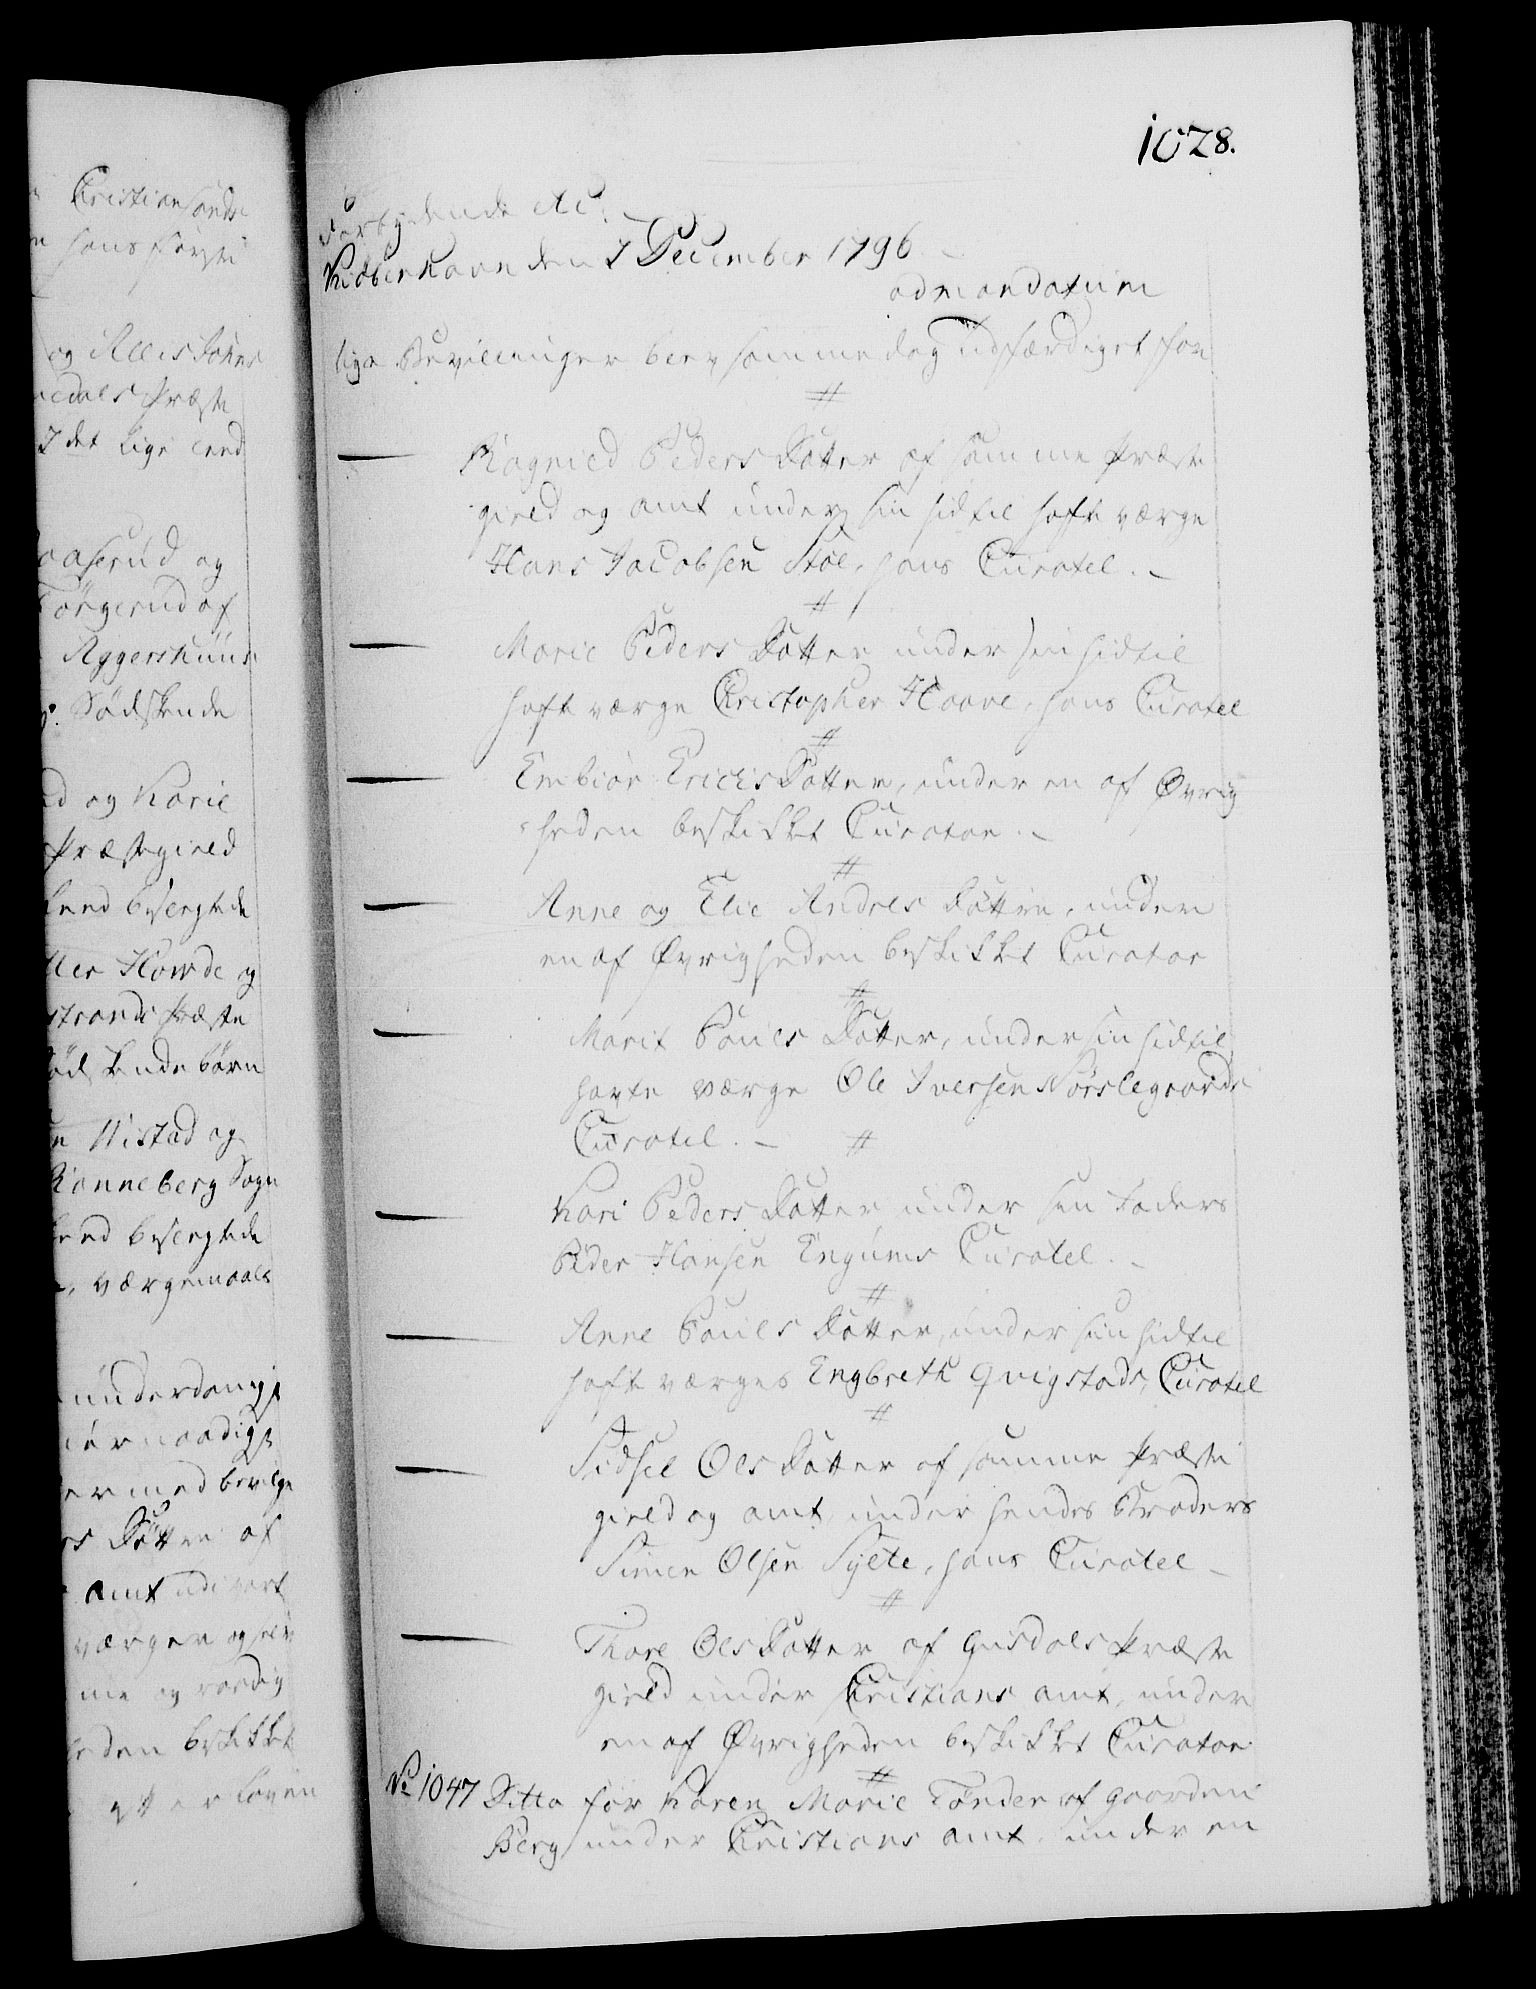 1028.
Christiansands
hans første
og Alles Johns
Præste
det lige lend
aaserud og
Torgerud af
Aggershuus
Sødskende
og Karie
Præstegield
lend besvogrede
ller Howde og
strands Præste
Sødskendebørn
Wistad og
Ranneberg Sogn
lend besvogrede
værgemaals
underdanigst
allernaadigst
hermed bevilge
Døttre af
amt udi vort
værger og selv
me og raadig
heden beskikket
efter Loven
Forbydende etc:
Kiøbenhavn den 7 December 1796
ad mandatum
lige Bevillinger blev samme dag udfærdiget for
#
Ragnild Peders Datter af samme Præste
gield og amt under sin hidtil hafte værge
Hans Jacobsen Stoe, hans Curatel.
#
Marie Peders Datter under sin hidtil
hafte værge Christopher Haave, hans Curatel
#
Embiør Erichs Datter, under en af Øvrig
heden beskikket Curator.
#
Anne og Elie Andres Døttre, under
en af Øvrigheden beskikket Curator
#
Marit Pouels Datter, under sin hidtil
havte værge Ole Iversen Nørslegaards
Curatel. #
Kari Peders Datter, under sin Faders
Peder Hansen Engums Curatel.
#
Anne Pouels Datter, under sin hidtil
haft værges Engbreth Qvigstads, Curatel
#
Sidsel Ols Datter af samme Præste
gield og amt, under hendes Broders
Simen Olsen Sylte, hans Curatel
#
Thore Ols Datter af Gusdals Præste
gield under Christians amt, under
en af Øvrigheden beskikket Curator
#
No 1047 Ditto for Karen Marie Tønder af gaarden
Berg under Christians amt, under en